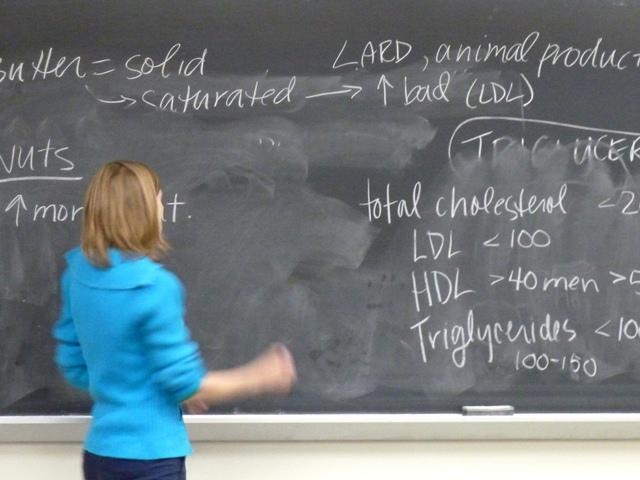 Butter = solid
LARD, animal product
→ saturated → ↑ bad (LDL)
NUTS
total cholesterol <2
↑ mor t.
LDL <100
HDL >40 men >5
Triglycerides <10
100-150